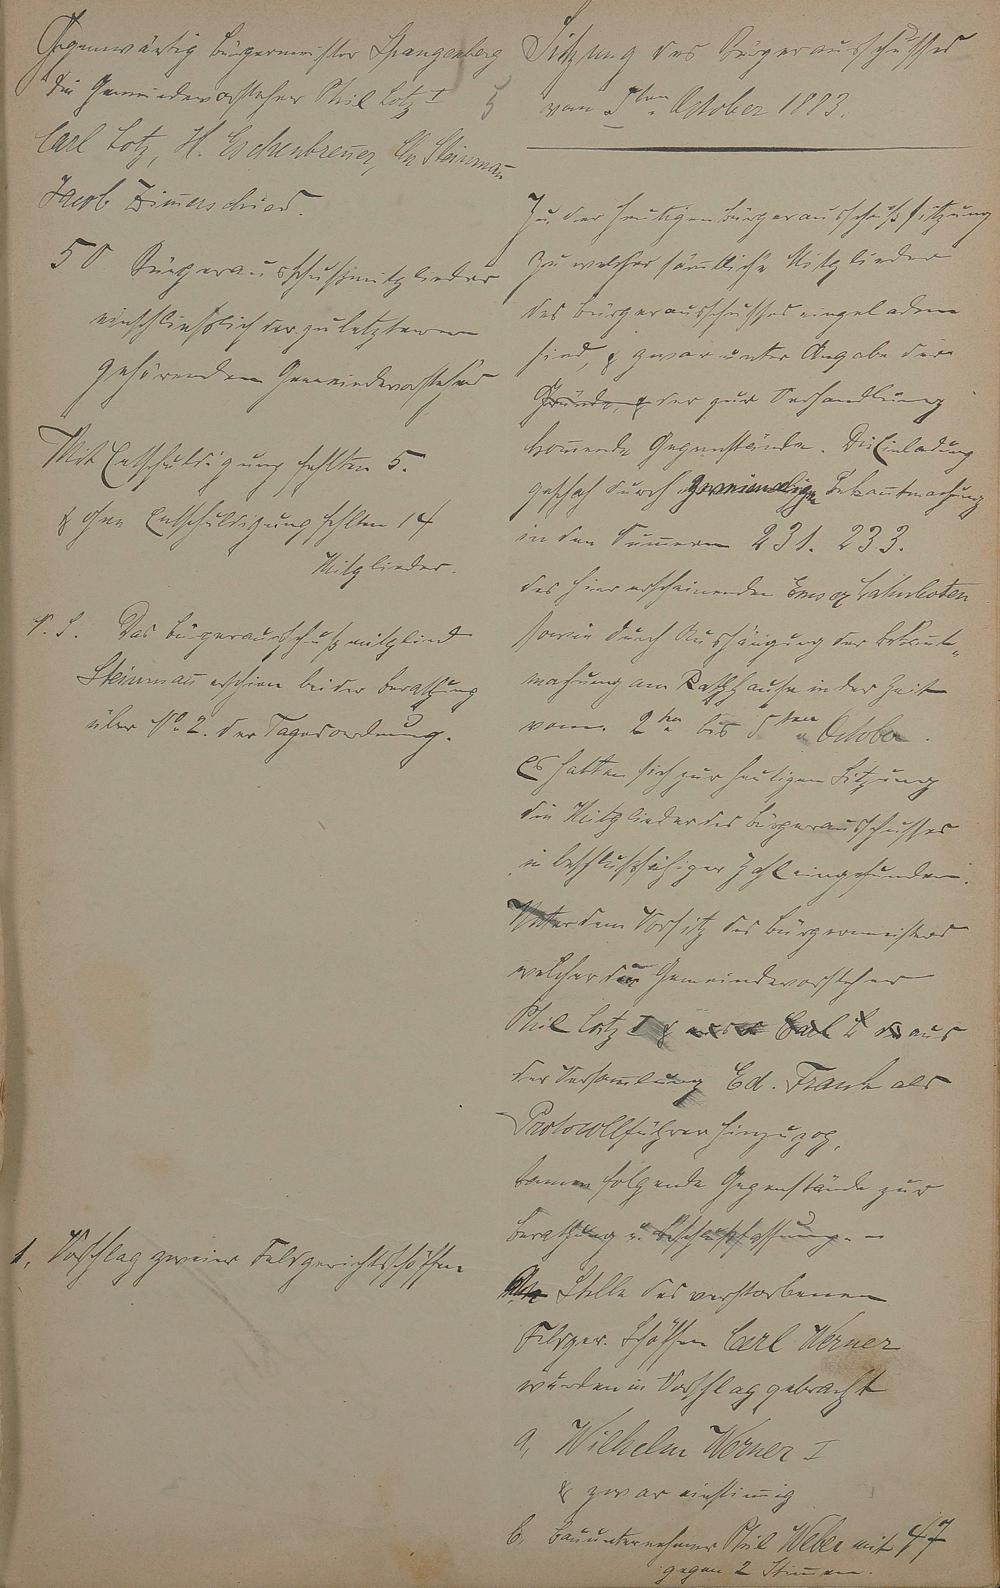 Gegenwärtig Bürgermeister Spangenberg
die Gemeindevorsteher Phil Lotz I
Carl Lotz, H. Eschenbrener, Chr Steinmau
Jacob Zimerschied.
50 Bürgerausschußmitglieder
einschließlich der zu letzteren
gehörenden Gemeindevorsteher
Mit Entschuldigung fehlten 5.
& ohne Entschuldigung fehlten 14
Mitglieder.
N. S. Das Bürgerausschußmitglied
Steinmau erschien bei der Berathung
über No 2. der Tagesordnung.
1, Vorschlag zweier Feldgerichtsschöffen
Sitzung des Bürgerausschusses
vom 5ten October 1883.
Zu der heutigen Bürgerausschußsitzung
zu welcher sämtliche Mitglieder
des Bürgerausschusses eingeladen
sind, & zwar unter Angabe der
Gründe, & der zur Verhandlung
komende Gegenstände. Die Einladung
geschah durch zweimalige Bekantmachung
in den Numern 231. 233.
des hier erscheinenden Emser Lahnboten
sowie durch Aushängung der Bekant-
machung am Rathhause in der Zeit
vom 2ten bis 5ten October.
Es hatten sich zur heutigen Sitzung
die Mitglieder des Bürgerausschusses
in beschlußfähiger Zahl eingefunden.
Unter dem Vorsitz des Bürgermeisters
welcher den Gemeindevorsteher
Phil Lotz I & aus
der Versamlung Ed. Frank als
Protocollführer hinzuzog,
kamen folgende Gegenstände zur
Berathung u. Beschlußfassung.
An Stelle des verstorbenen
Feldger. Schöffen Carl Werner
wurden in Vorschlag gebracht
a, Wilhelm Werner I
& zwar einstimig
b, Bauunternehmer Phil Weber mit 47
gegen 2 Stimen.